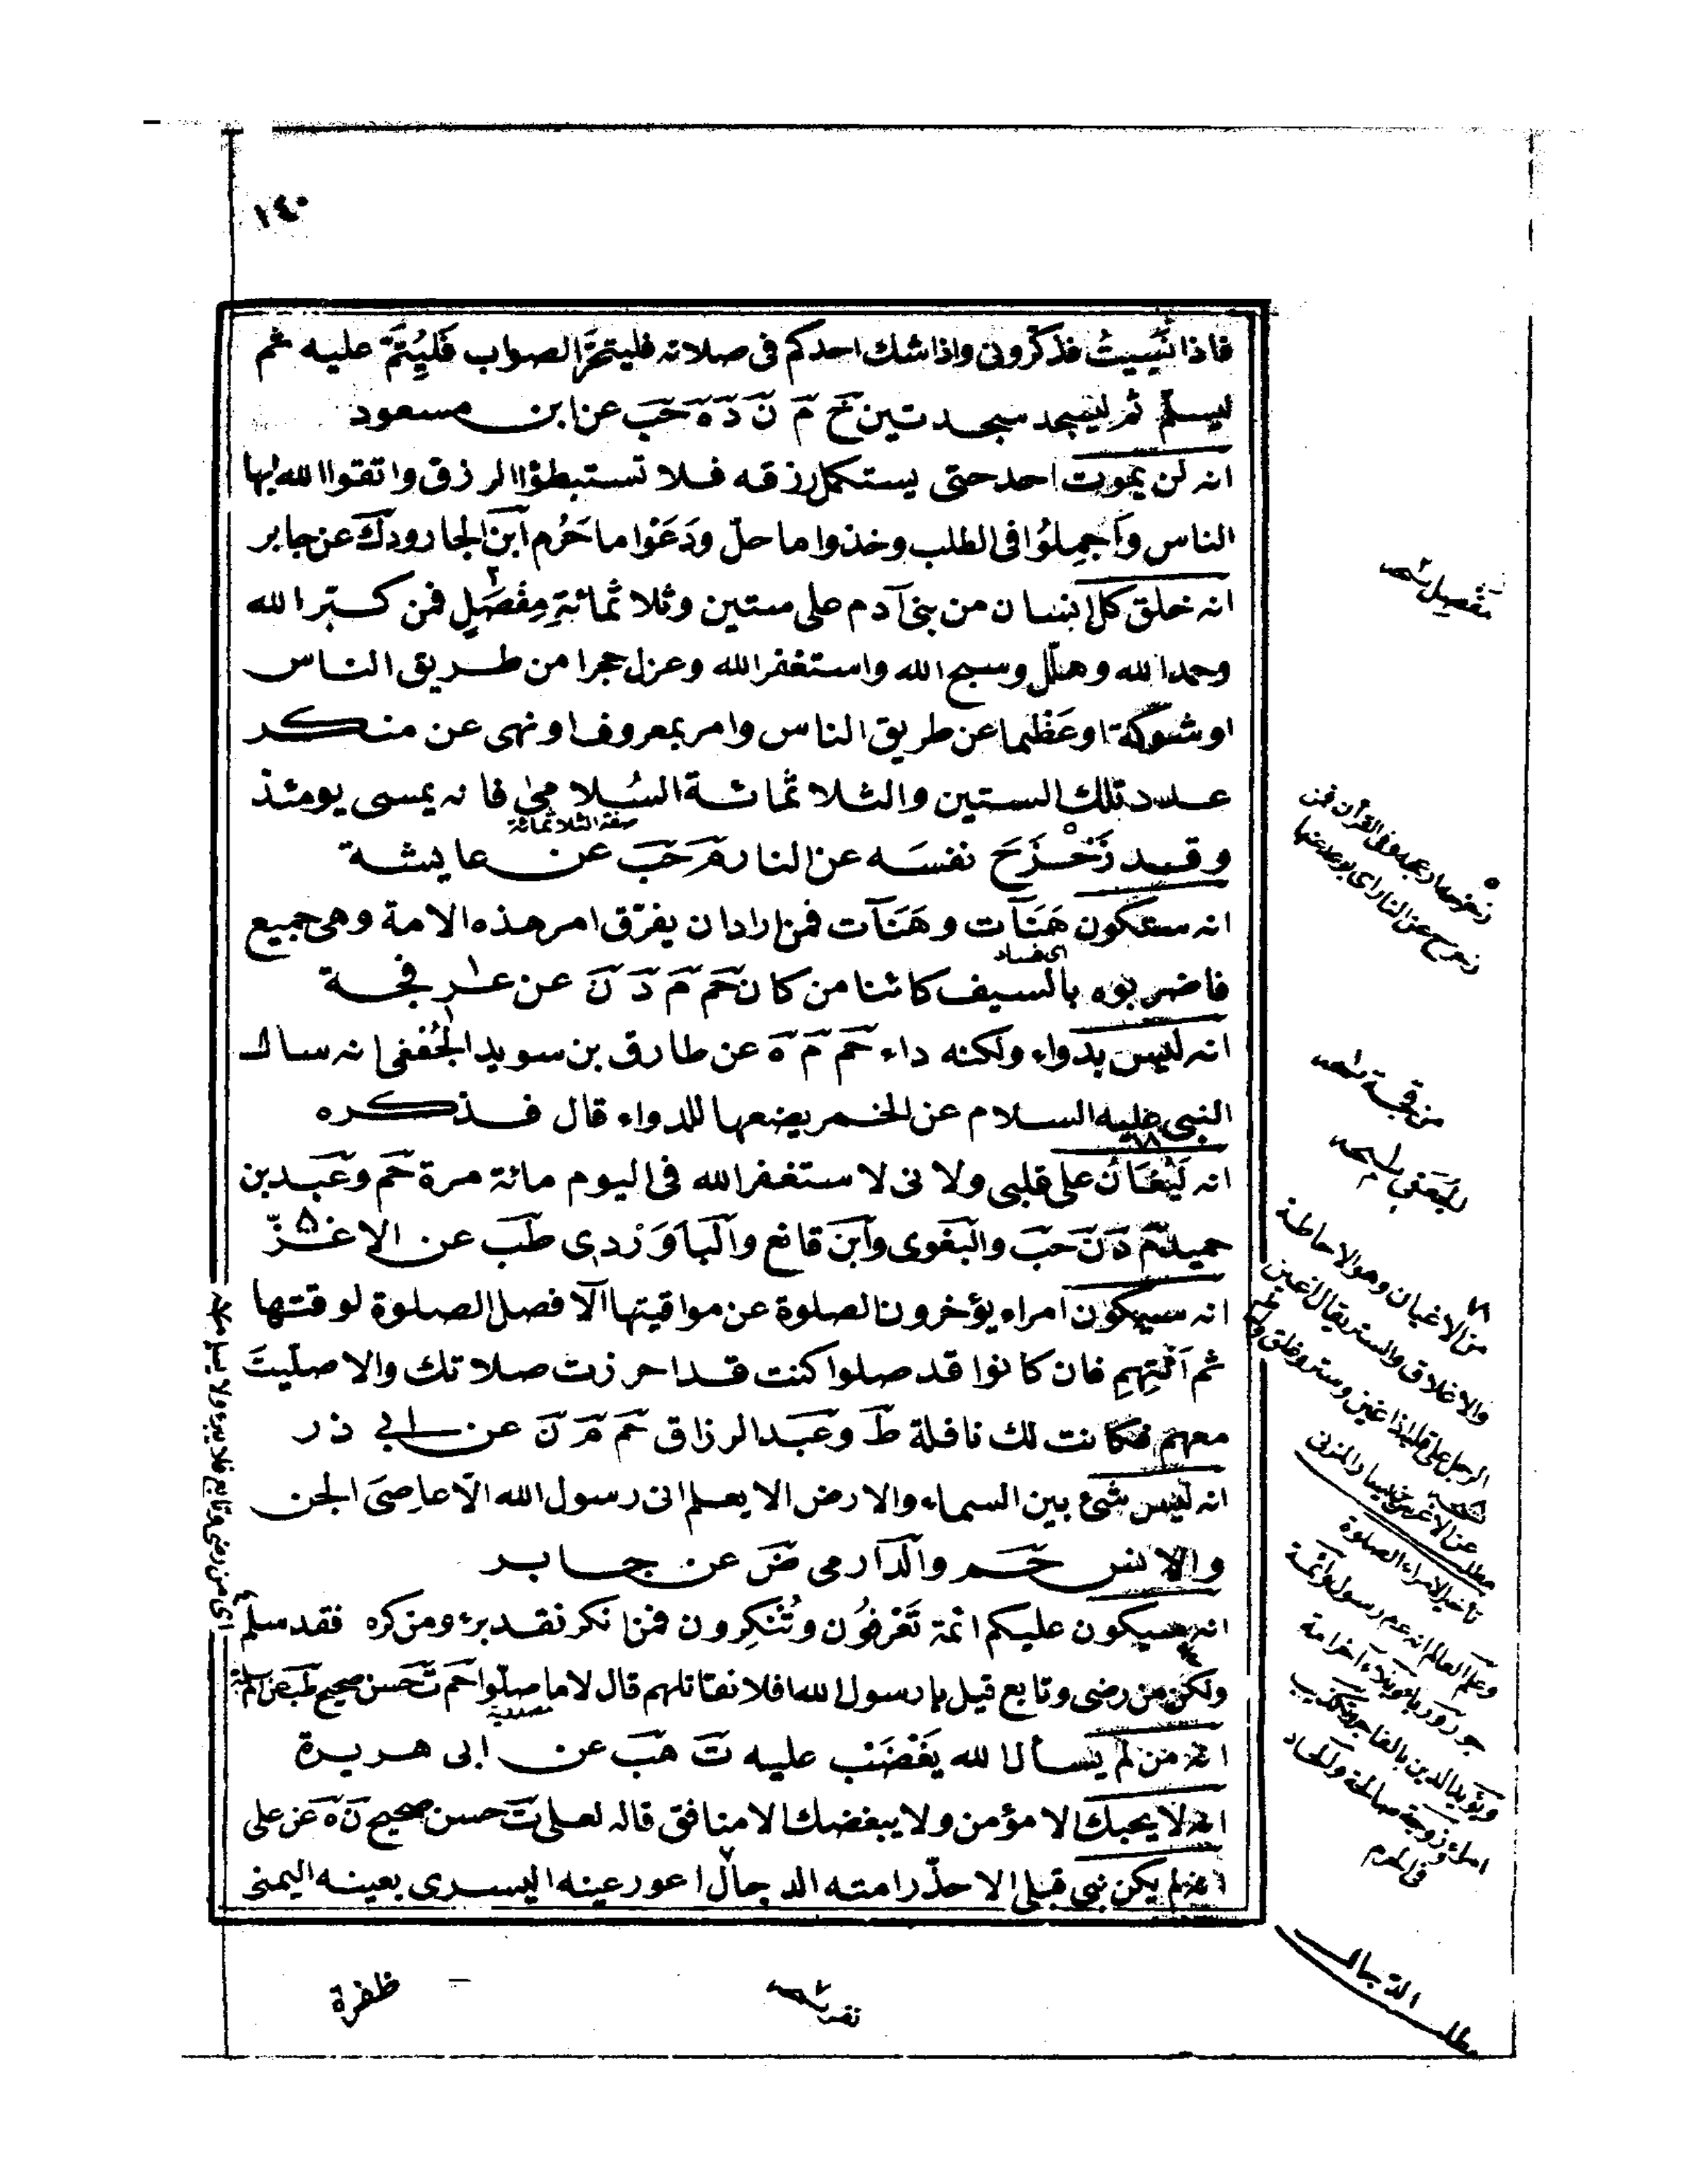 ١٤٠
فاذا نَسِيتُ فذكّرونى واذا شك احدكم فى صلاته فليتحرَّ الصواب فَليُتِمَّ عليه ثم
ليسلّم ثم ليسجد سجدتين خ م ن د ه حب عن ابن مسعود
انه لن يموت احد حتى يستكمل رزقه فلا تستبطؤا الرزق واتقوا الله ايها
الناس وأجمِلُوا فى الطلب وخذوا ما حلّ ودَعَوْا ما حَرُم ابن الجارود ك عن جابر
انه خلق كل انسان من بنى آدم على ستين وثلاثمائة مِفْصَلٍ فمن كبّر الله
وحمد الله وهلّل وسبح الله واستغفر الله وعزل حجرا من طريق الناس
او شوكة او عَظْما عن طريق الناس وامر بمعروف او نهى عن منكر
عدد تلك الستين والثلاثمائة السُلامىٰ فانه يمسى يومئذ
صفة الثلاثمائة
وقد زَحْزَحَ نفسَه عن النار م حب عن عايشة
انه ستكون هَنَآت وهَنَآت فمن اراد ان يفرّق امر هذه الامة وهى جميع
اى فساد
فاضربوه بالسيف كائنا من كان حم م د ن عن عرفجة
انه ليس بدواء ولكنه داء حم م ه عن طارق بن سويد الجُعْفى انه سال
النبى عليه السلام عن الخمر يضعها للدواء قال فذكره
انه لَيُغَانُ على قلبى وانى لاستغفر الله فى اليوم مائة مرة حم وعبد بن
حميد م د ن حب والبغوى وابن قانع والباوَرْدى طب عن الاغرّ
انه سيكون امراء يؤخرون الصلوة عن مواقيتها اَلا فصل الصلوة لوقتها
ثم اَئْتِهِم فان كانوا قد صلوا كنت قد احرزت صلاتك والا صلّيتَ
معهم فكانت لك نافلة ط وعبد الرزاق حم م ن عن ابي ذر
انه ليس شئ بين السماء والارض الا يعلم انى رسول الله الّا عاصىَ الجن
والانس حم والدارمى ض عن جابر
انه سيكون عليكم ائمة تَعْرِفُون وتُنْكِرون فمن انكر فقد برء ومن كره فقد سلم
ولكن من رضى وتابع قيل يا رسول الله افلا نقاتلهم قال لا ما صلّوا حم ت حسن صحيح طب عن ام سلمة
انه من لم يسأل الله يَغْضَب عليه ت هب عن ابى هريرة
انه لا يحبك الا مؤمن ولا يبغضك الا منافق قاله لعلى ت حسن صحيح ن ه عن على
انه لم يكن نبى قبلى الا حذّر امته الدجال اعور عينه اليسرى بعينه اليمنى
ظفرة
مَفْصِل نسخه
زحزح عن النار اى بوعد عنها
الجعفى نسخه
من الاغيان وهو الاحاطة
والاغلاق والستر يقال اغين
تأخير الامراء الصلوة
مطلب الدجال